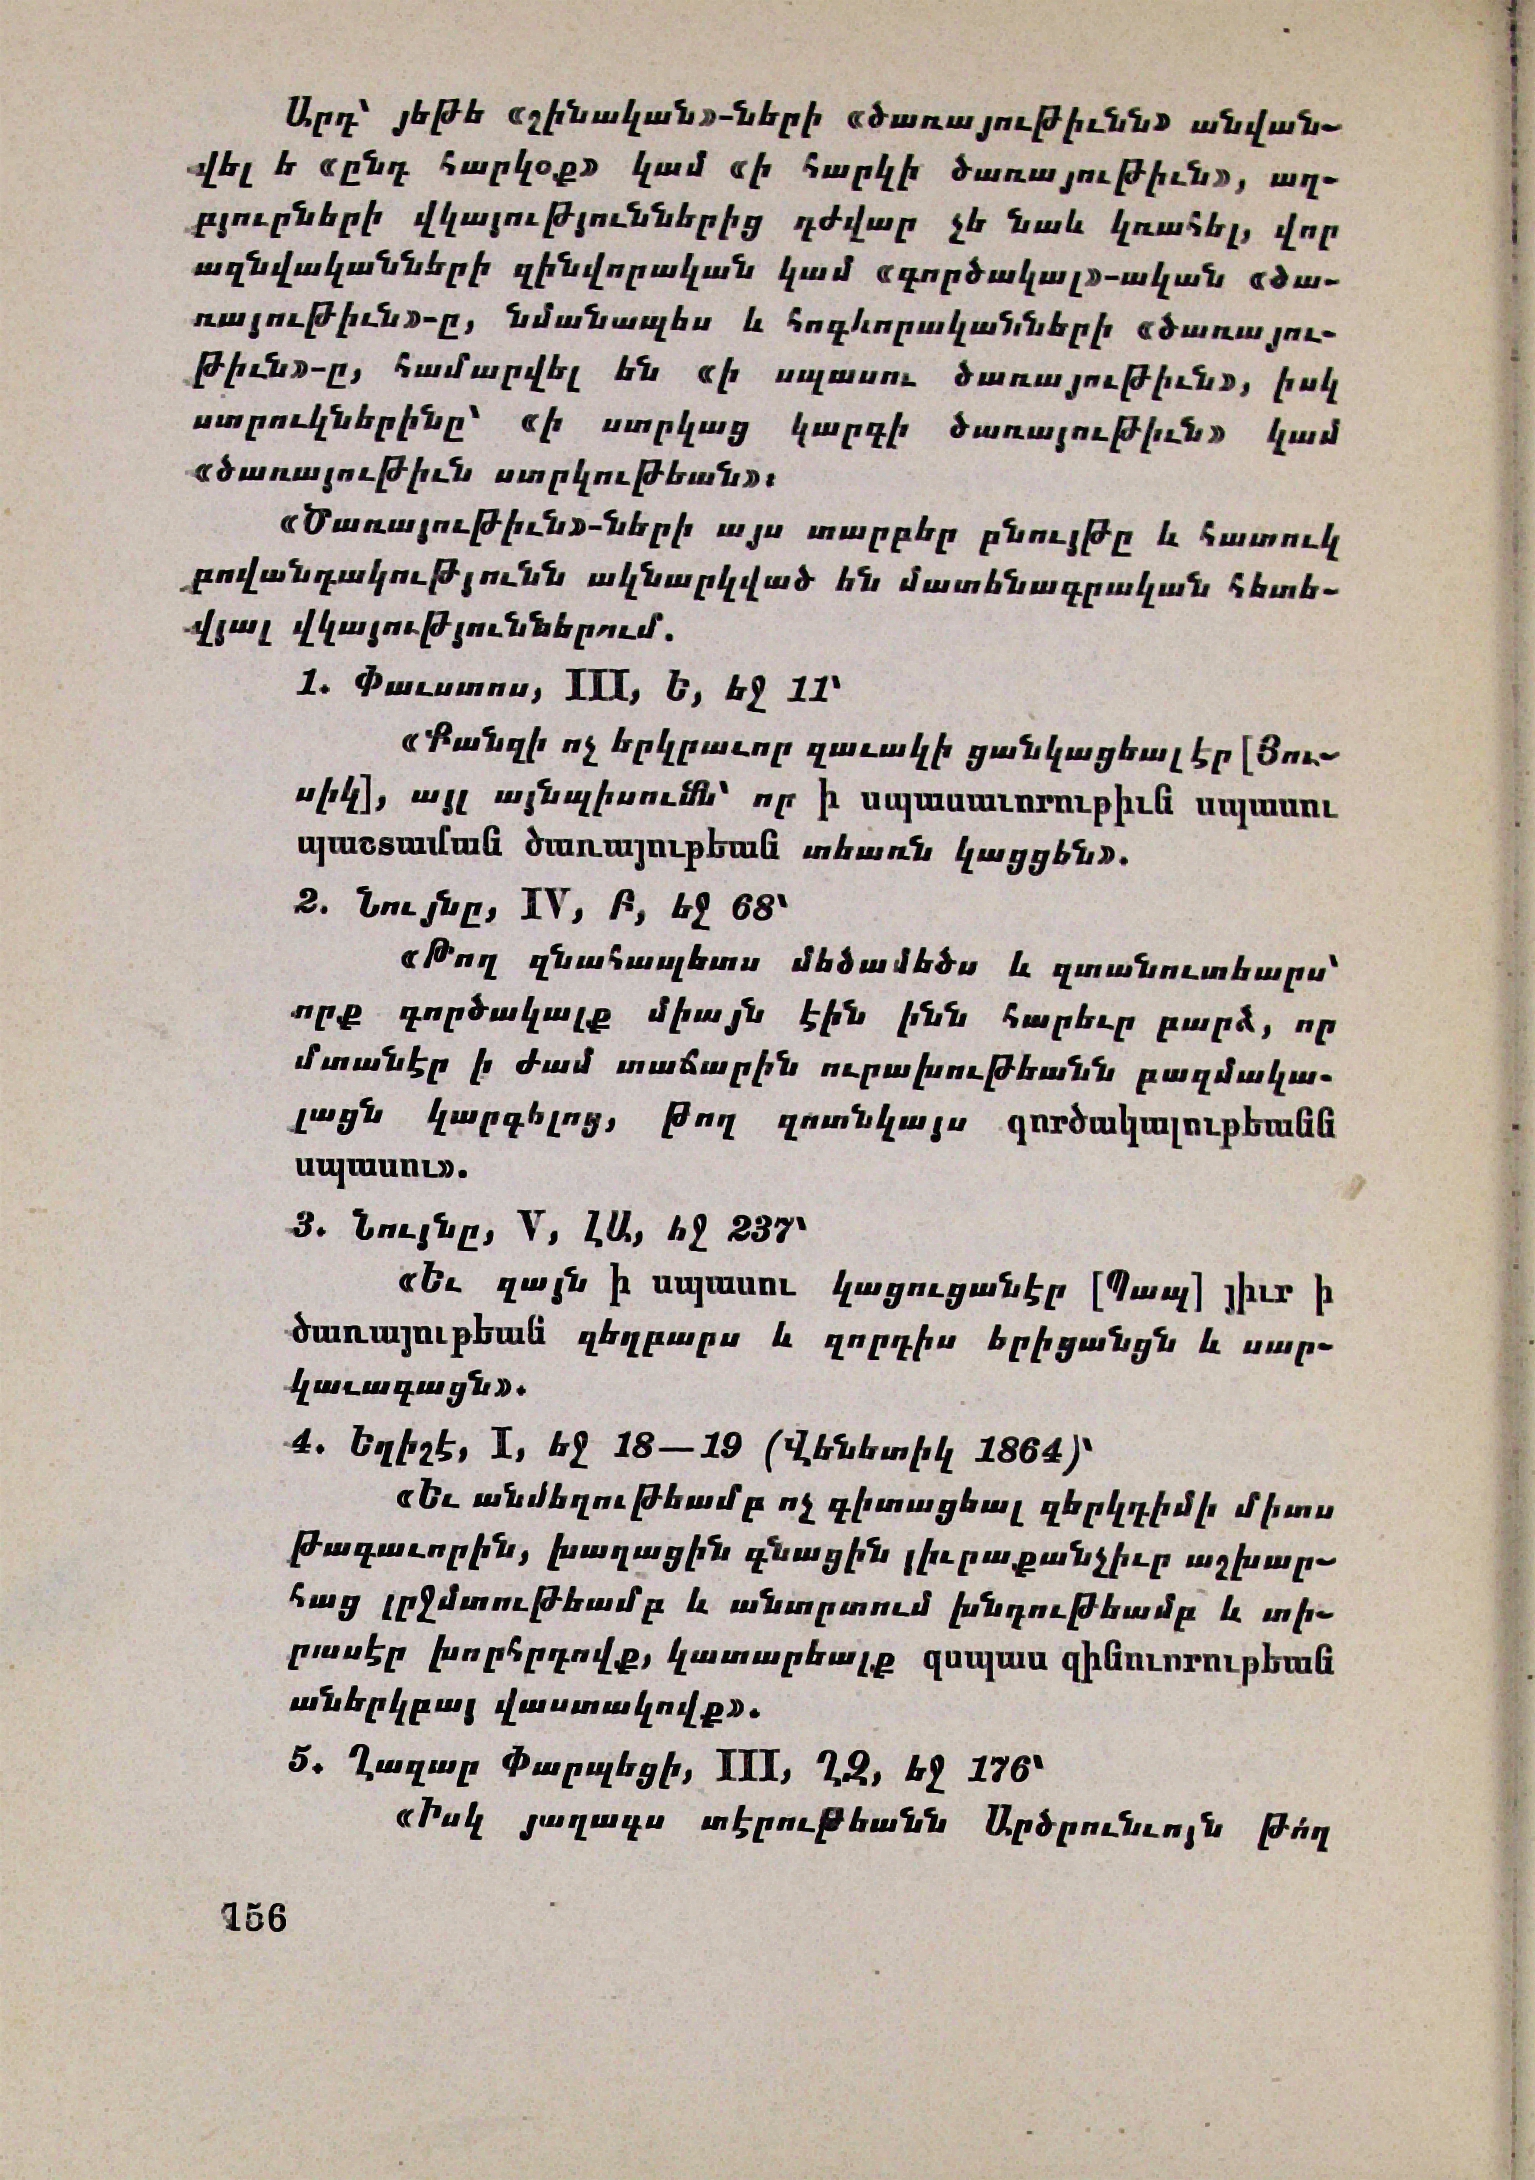 Արդ՝ յեթե «շինական»-ների «ծառայութիւնն» անվան-
վել ե «ընդ հարկօք» կամ «ի հարկի ծառայութիւն», աղ-
բյուրների վկայություններից դժվար չե նաև կռահել, վոր
ազնվականների զինվորական կամ «գործակալ»-ական «ծա-
ռայութիւն»-ը, նմանապես և հոգևորականների «ծառայու-
թիւն»-ը, համարվել են «ի սպասու ծառայութիւն», իսկ
ստրուկներինը՝ «ի ստրկաց կարգի ծառայութիւն» կամ
«ծառայութիւն ստրկութեան»։
«Ծառայութիւն»-ների այս տարբեր բնույթը և հատուկ
բովանդակությունն ակնարկված են մատենագրական հետե-
վյալ վկայություններում.
1. Փաւստոս, III, Ե, եջ 11՝
«Քանզի ոչ երկրաւոր զաւակի ցանկացեալ էր [Յու-
սիկ], այլ այնպիսումն՝ որ ի սպասաւորութիւն սպասու
պաշտաման ծառայութեան տեառն կացցեն».
2. Նույնը, IV, Բ, եջ 68՝
«Թող զնահապետս մեծամեծս և զտանուտեարս՝
որք գործակալք միայն էին ինն հարեւր բարձ, որ
մտանէր ի ժամ տաճարին ուրախութեանն բազմակա-
լացն կարգելոց, թող զոտնկայս գործակալութեանն
սպասու».
3. Նույնը, V, ԼԱ, եջ 237՝
«Եւ զայն ի սպասու կացուցանէր [Պապ] յիւր ի
ծառայութեան զեղբարս և զորդիս երիցանցն և սար-
կաւագացն».
4. Եղիշէ, I, եջ 18—19 (Վենետիկ 1864)՝
«Եւ անմեղութեամբ ոչ գիտացեալ զերկդիմի միտս
թագաւորին, խաղացին գնացին յիւրաքանչիւր աշխար-
հաց լրջմտութեամբ և անտրտում խնդութեամբ և տի-
րասէր խորհրդովք, կատարեալք զսպաս զինուորութեան
աներկբայ վաստակովք».
5. Ղազար Փարպեցի, III, ՂԶ, եջ 176՝
«Իսկ յաղագս տէրութեանն Արծրունւոյն թո՛ղ
156